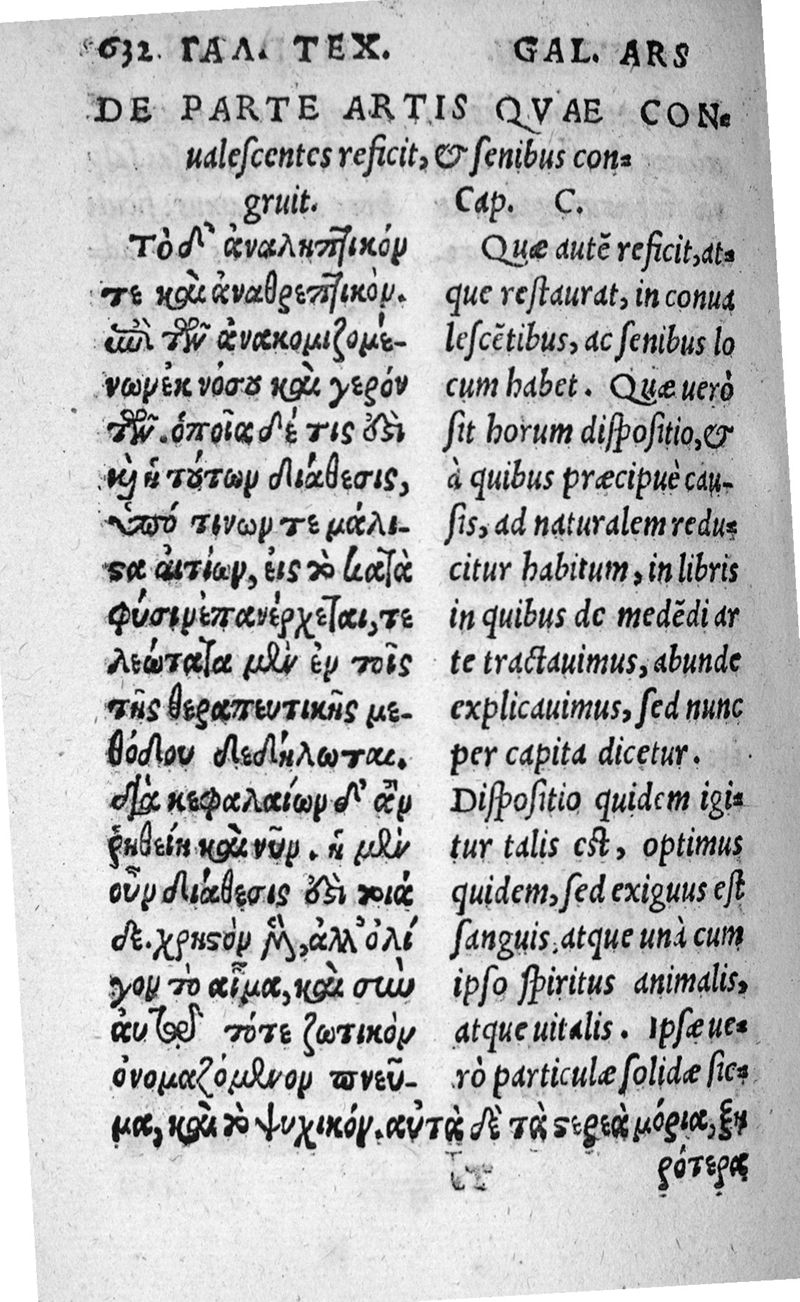 632 ΓΑΛ. ΤΕΧ. GAL. ARS
DE PARTE ARTIS QVAE CON-
ualescentes reficit, & senibus con-
gruit. Cap. C.
Τὸ δ' ἀναληπτικόν
τε καὶ ἀναθρεπτικὸν.
ἐπὶ τῶν ἀνακομιζομέ-
νων ἐκ νόσου καὶ γερόν
των. ὁποία δέ τις ἐστὶ
καὶ ἡ τούτων διάθεσις,
ὑπό τινων τε μάλι-
στα αἰτίων, εἰς τὸ κατὰ
φύσιν ἐπανέρχεται, τε
λεώτατα μὲν ἐν τοῖς
τῆς θεραπευτικῆς με-
θόδου δεδήλωται.
διὰ κεφαλαίων δ' ἂν
ῥηθείη καὶ νῦν. ἡ μὲν
οὖν διάθεσις ἐστὶ τοιά
δε. χρηστὸν μὲν, ἀλλ' ὀλί
γον τὸ αἷμα, καὶ σὺν
αὐτῷ τότε ζωτικὸν
ὀνομαζόμενον πνεῦ-
μα, καὶ τὸ ψυχικόν. αὐτὰ δὲ τὰ στερεὰ μόρια, ξη
ρότερα
Quæ autẽ reficit, at-
que restaurat, in conua
lescẽtibus, ac senibus lo
cum habet. Quæ uerò
sit horum dispositio, &
à quibus præcipuè cau-
sis, ad naturalem redu-
citur habitum, in libris
in quibus de medẽdi ar
te tractauimus, abunde
explicauimus, sed nunc
per capita dicetur.
Dispositio quidem igi-
tur talis est, optimus
quidem, sed exiguus est
sanguis, atque unà cum
ipso spiritus animalis,
atque uitalis. Ipsæ ue-
rò particulæ solidæ sic-